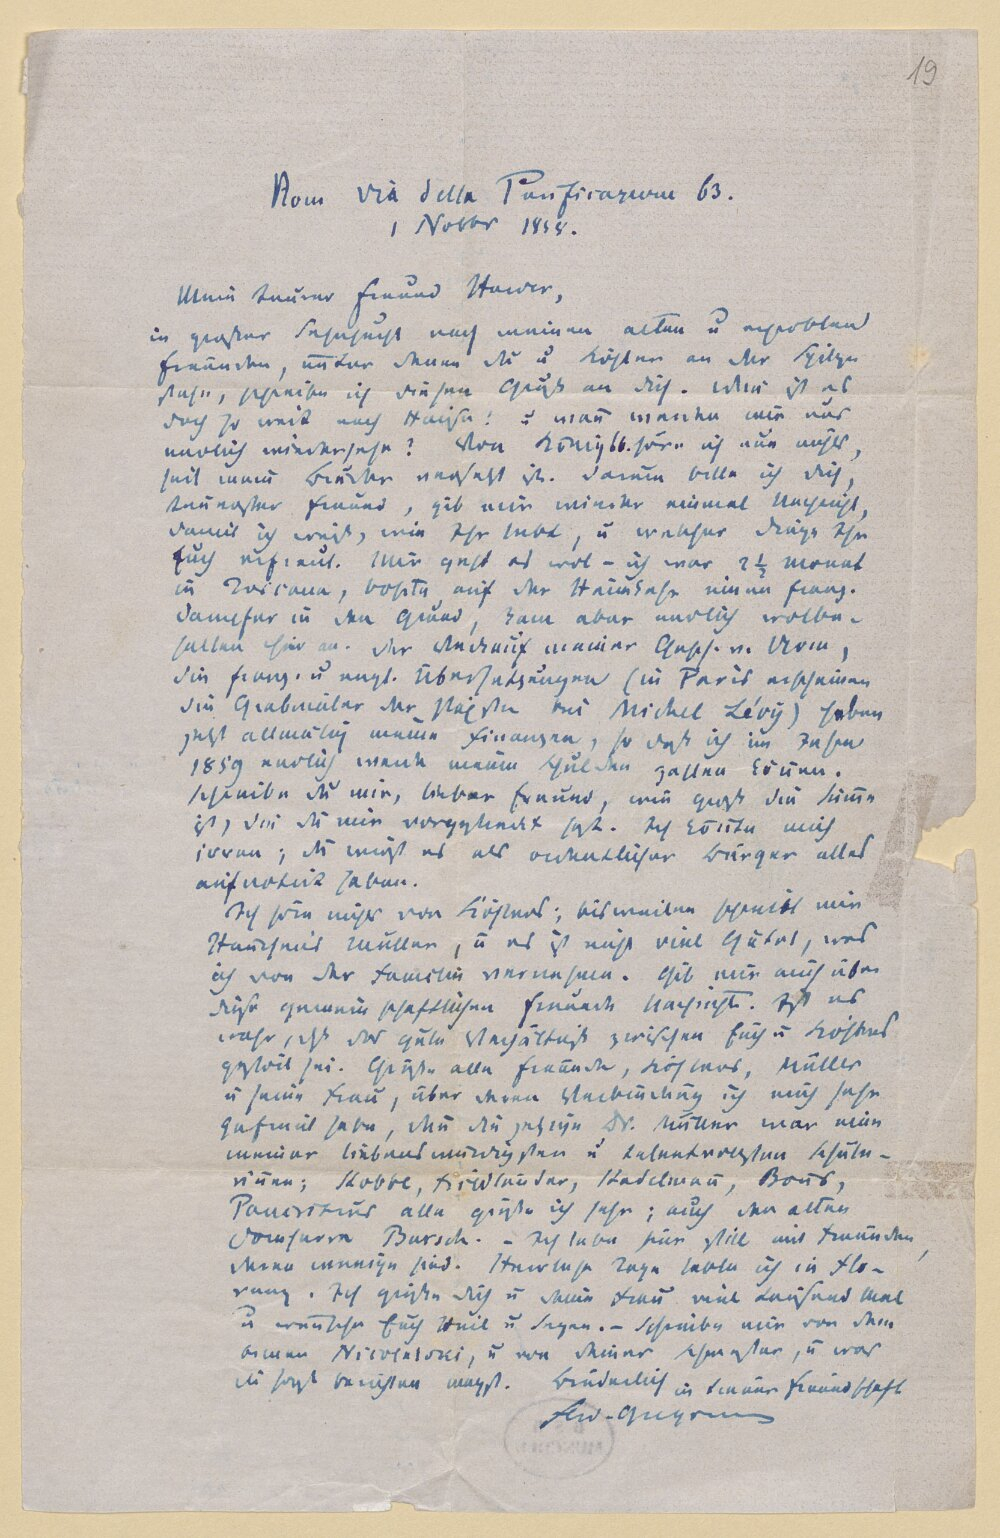 19
Rom Via della Purificazione 63.
1 Novbr 1858.
Mein teurer Freund Hawer,
in großer Sehnsucht nach meinen alten u erprobten
Freunden, unter denen du u Köhler an der Spitze
stehn, schreibe ich diesen Gruß an dich. Mir ist es
doch so weit nach Hause! u wann werden wir uns
endlich wiedersehn? Von Königsb. höre ich nun nichts,
seit mein Bruder versetzt ist. Darum bitte ich dich,
teuerster Freund, gib mir wieder einmal Nachricht,
damit ich weiß, wie Ihr lebt, u welcher Dinge Ihr
Euch erfreut. Mir geht es wol – ich war 2½ Monat
in Toscana, bohrte auf der Heimkehr einen franz.
Dampfer in den Grund, kam aber endlich wolbe-
halten hier an. Der Verkauf meiner Gesch. v. Rom,
die franz. u engl. Übersetzungen (in Paris erscheinen
die Grabmäler der Päpste bei Michel Lévy) heben
jetzt allmälig meine Finanzen, so daß ich im Jahre
1859 endlich werde meine Schulden zahlen können.
Schreibe du mir, lieber Freund, wie groß die Summe
ist, die du mir vorgestreckt hast. Ich könnte mich
irren; du wirst es als ordentlicher Bürger alles
aufnotirt haben.
Ich höre nichts von Köhlers; bisweilen schreibt mir
Müller, u es ist nicht viel Gutes, was
ich von der Familie vernehme. Gib mir auch über
diese gemeinschaftlichen Freunde Nachricht. Ist es
wahr, daß das gute Verhältniß zwischen Euch u Köhlers
gestört sei. Grüße alle Freunde, Köhlers, Müller
u seine Frau, über deren Verbindung ich mich sehr
gefreut habe, denn die jetzige Dr. Müller war eine
meiner liebenswürdigsten u talentvollsten Schüle-
rinnen; Kobbe, Friedländer, Stadelmann, Bons,
alle grüße ich sehr; auch den alten
Domherrn Barsch. – Ich lebe hier still mit Freunden,
deren wenige sind. Herrliche Tage lebte ich in Flo-
renz. Ich grüße dich u deine Frau viel tausend Mal
u wünsche Euch Heil u Segen. – Schreibe mir von dem
armen Nicolovski, u von deiner Schwester, u was
du sonst berichten magst. Brüderlich in treuer Freundschaft
Ferd. Gregorovius